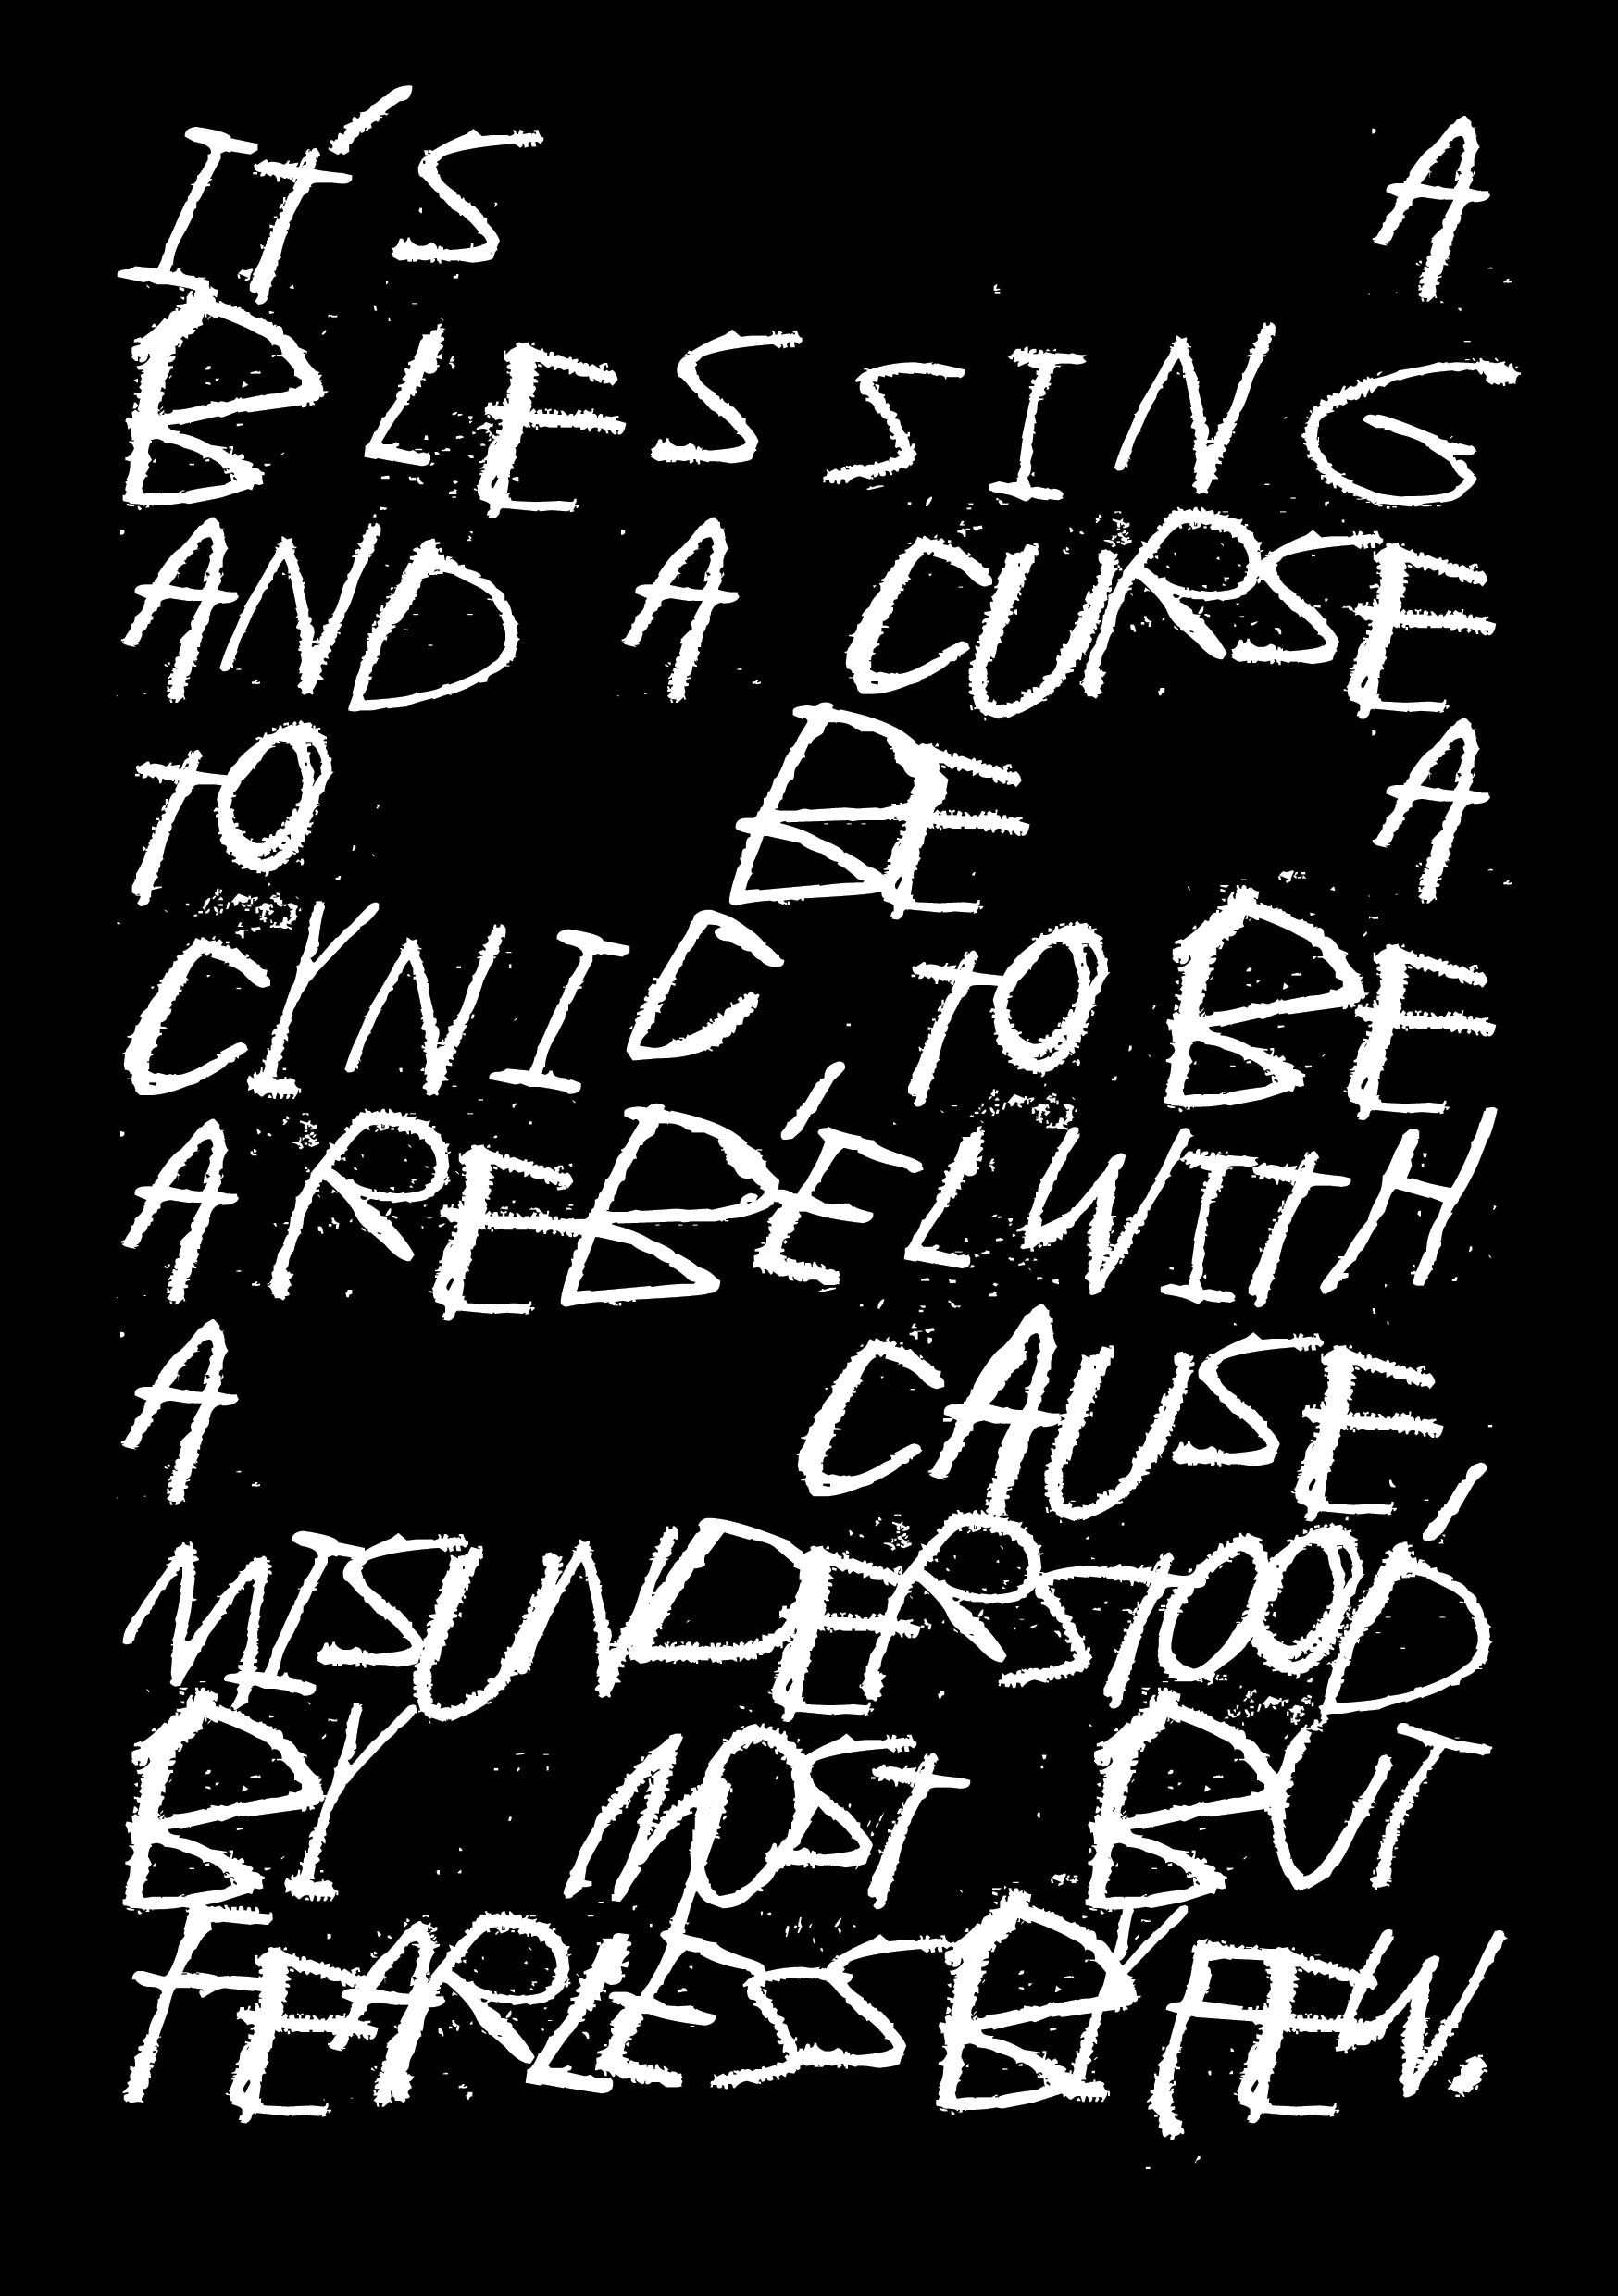 IT'S A
BLESSING
AND A CURSE
TO BE A
CYNIC, TO BE
A REBEL WITH
A CAUSE,
MISUNDERSTOOD
BY MOST BUT
FEARLESS BY FEW.